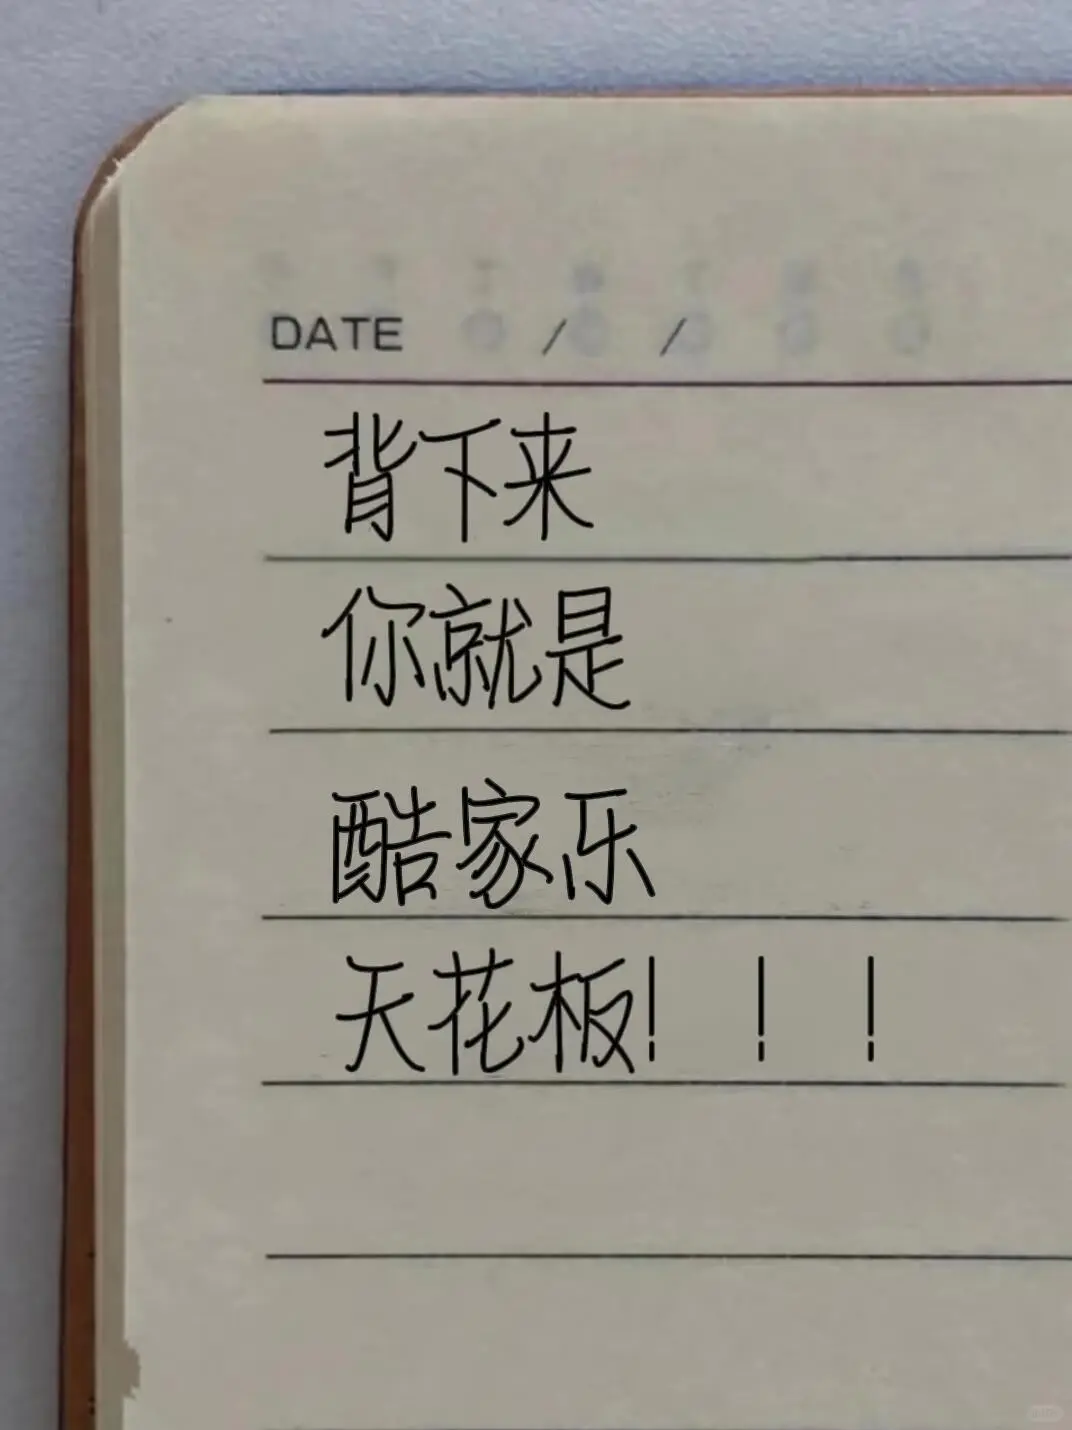 DATE / /
背下来
你就是
酷家乐
天花板！！！